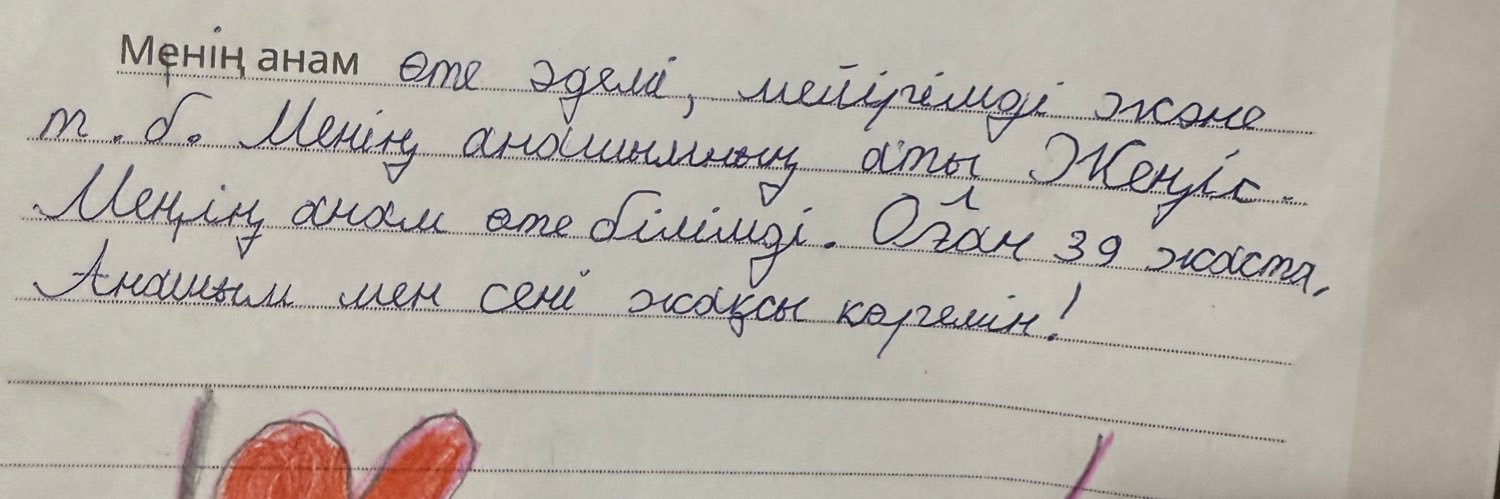 Менің анам өте әделі, мейірімді және
т.б. Менің анашымның аты Жеңіс.
Менің анам өте білімді. Оған 39 жаста,
Анашым мен сені жақсы көремін!